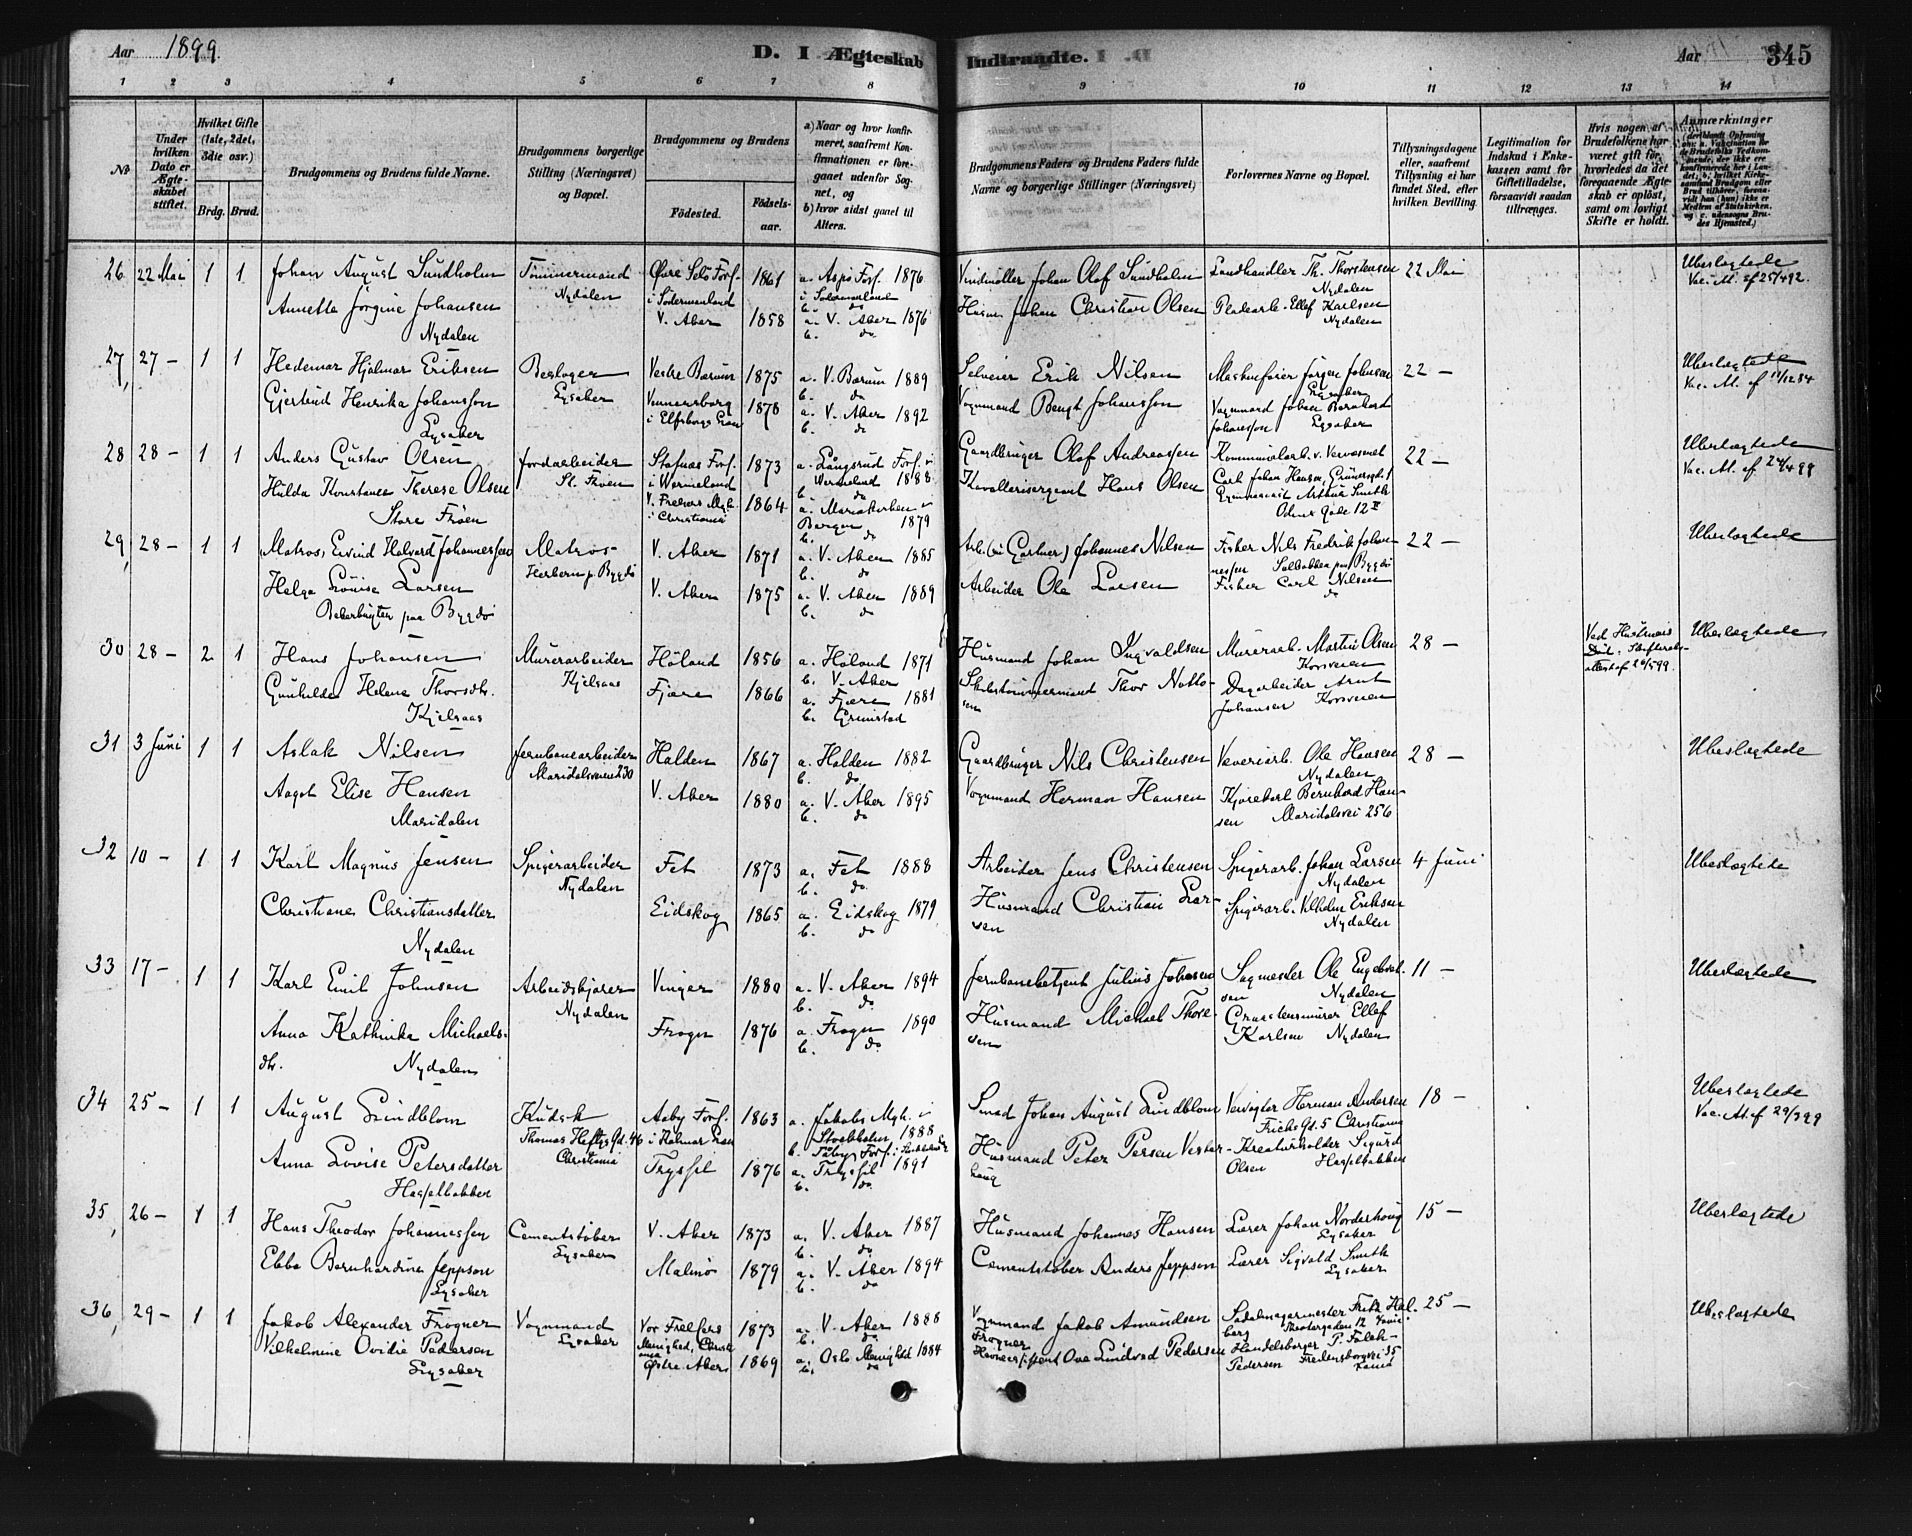 Aar 1899.
D. I Ægteskab Indtraadte.
Aar 345
1 2 3 4 5 6 7 8 9 10 11 12 13 14
No
Under hvilken Dato er Ægteskabet stiftet.
Hvilket Gifte (1ste, 2det, 3die osv.)
Brdg. Brud.
Brudgommens og Brudens fulde Navne.
Brudgommens borgerlige Stilling (Næringsvei) og Bopæl.
Brudgommens og Brudens
Fødested. Fødselsaar.
a) Naar og hvor konfirmeret, saafremt Konfirmationen er foregaaet udenfor Sognet, og
b) hvor sidst gaaet til Alters.
Brudgommens Faders og Brudens Faders fulde Navne og borgerlige Stillinger (Næringsvei)
Forlovernes Navne og Bopæl.
Tillysningsdagene eller, saafremt Tillysning ei har fundet Sted, efter hvilken Bevilling.
Legitimation for Indskud i Enkekassen samt for Giftetilladelse, forsaavidt saadan tiltrænges.
Hvis nogen af Brudefolkene har været gift før, hvorledes da det foregaaende Ægteskab er opløst, samt om lovligt Skifte er holdt.
Anmærkninger
26 22 Mai 1 1 Johan August Sundholm Tømmermand Nydalen Øvre Sels Fors. i Södermanland 1861 a. Aspö Fors. 1876 i Södermanland b. do Vindmøller Johan Olof Sundholm Landhandler Th. Thorstensen Nydalen 22 Mai Ubeslægtede Vac. At. af 25/4 92.
Annette Jørgine Johansen Nydalen V. Aker 1858 a. V. Aker 1876 b. do Husm. Johan Christian Olsen Pladearb. Ellef Karlsen Nydalen
27, 27 - 1 1 Hedemar Hjalmar Eriksen Lysaker Vestre Bærum 1875 a. V. Bærum 1889 b. do Selveier Erik Nilsen Maskinfører Jørgen Johnsen Lysaker 22 - Ubeslægtede Vac. At. af 11/12 84
Gjertrud Henrika Johansson Lysaker Wenersborg i Elfsborgs Län 1878 a. V. Aker 1892 b. do Vognmand Bengt Johansson Vognmand Johan Bernhard Johansson Lysaker
28 28 - 1 1 Anders Gustav Olsen Jordarbeider St. Frøen Stafnäs Fors. i Wermeland 1873 a. Långsrud Fors. i Wermeland 1888 b. do Gaardbruger Olof Andreassen Kommunalarb. Carl Johan Hansen, 22 - Ubeslægtede
Hulda Konstance Therese Olsen Store Frøen V. Frelsers Mgh. i Christiania 1864 a. Mariakirken i Bergen 1879 b. do Kavallerisergeant Hans Olsen Arthur Smith Odins Gade 12 II
29, 28 - 1 1 Matros, Eivind Halvard Johannessen Matros Herbern p. Bygdø V. Aker 1871 a. V. Aker 1885 b. do Arb. (Gartner) Johannes Nilsen Fisker Nils Fredrik Johannessen Solbakken paa Bygdø 22 - Ubeslægtede
Helga Lovise Larsen Bekkerbugten paa Bygdø V. Aker 1875 a. V. Aker 1889 b. do Arbeider Ole Larsen Fisker Carl Nilsen do
30 28 - 2 1 Hans Johansen Murerarbeider Kjelsaas Høland 1856 a. Høland 1871 b. V. Aker Husmand Johan Ingvaldsen Murerarb. Martin Olsen Korsveien 28 - Ved Hustrus Død. Skifteattest af 26/5 99. Ubeslægtede
Gunhilda Helene Thorsdtr. Kjelsaas Fjære 1866 a. Fjære 1881 b. Grimstad Skibstømmermand Thor Nottosen Dagarbeider Arnt Johansen Korsveien
31 3 Juni 1 1 Aslak Nilsen Jernbanearbeider Maridalsveien 230 Halden 1867 a. Halden 1882 b. do Gaardbruger Nils Christensen Væveriarb. Ole Hansen Nydalen 28 - Ubeslægtede
Aagot Elise Hansen Maridalen V. Aker 1880 a. V. Aker 1895 b. do Vognmand Herman Hansen Kjørekarl Bernhard Hansen Maridalsvei 256
32 10 - 1 1 Karl Magnus Jensen Spigerarbeider Nydalen Fet 1873 a. Fet 1888 b. do Arbeider Jens Christensen Spigerarb. Johan Larsen Nydalen 4 Juni Ubeslægtede
Christiane Christiansdatter Nydalen Eidskog 1865 a. Eidskog 1879 b. do Husmand Christian Larsen Spigerarb. Vilhelm Eriksen Nydalen
33 17 - 1 1 Karl Emil Johnsen Arbeidskjører Nydalen Vinger 1880 a. V. Aker 1894 b. do Jernbanebetjent Julius Johnsen Sagmester Ole Engebretsen Nydalen 11 - Ubeslægtede
Anna Kathinka Michaelsdtr. Nydalen Frogn 1876 a. Frogn 1890 b. do Husmand Michael Thoresen Graastensmurer Ellef Karlsen Nydalen
34 25 - 1 1 August Lindblom Kudsk Thomas Heftys Gd. 46 Christiania Aaby Fors. i Kalmar Län 1863 a. Jakobs Mgh. i Stockholm 1888 Smed Johan August Lindblom Herman Andersen 5 Christiania 18 - Ubeslægtede Vac. At. af 29/3 99
Anna Lovise Petersdatter Hasselbakken Trysil 1876 a. Trysil 1891 b. do Husmand Peter Persen Vesterhaug Kreaturholder Sigurd Olsen Hasselbakken
35, 26 - 1 1 Hans Theodor Johannessen Cementstøber Lysaker V. Aker 1873 a. V. Aker 1887 b. do Husmand Johannes Hansen Lærer Johan Norderhoug Lysaker 15 - Ubeslægtede
Ebba Bernhardine Jeppson Lysaker Malmø 1879 a. V. Aker 1894 b. do Cementstøber Anders Jeppson Lærer Sigvald Smith Lysaker
36, 29 - 1 1 Jakob Alexander Frogner Vognmand Lysaker Vor Frelsers Menighed, Christiania 1873 a. V. Aker 1888 b. do Vognmand Jakob Amundsen Frogner Sadelmagermester Fritz Halberg Theatergaden 12 25 - Ubeslægtede
Vilhelmine Ovidie Pedersen Lysaker Østre Aker 1869 a. Oslo Menighed 1884 b. do Ove Lindvad Pedersen Handelsborger P. Falck-Pedersen Fredensborgvei 35